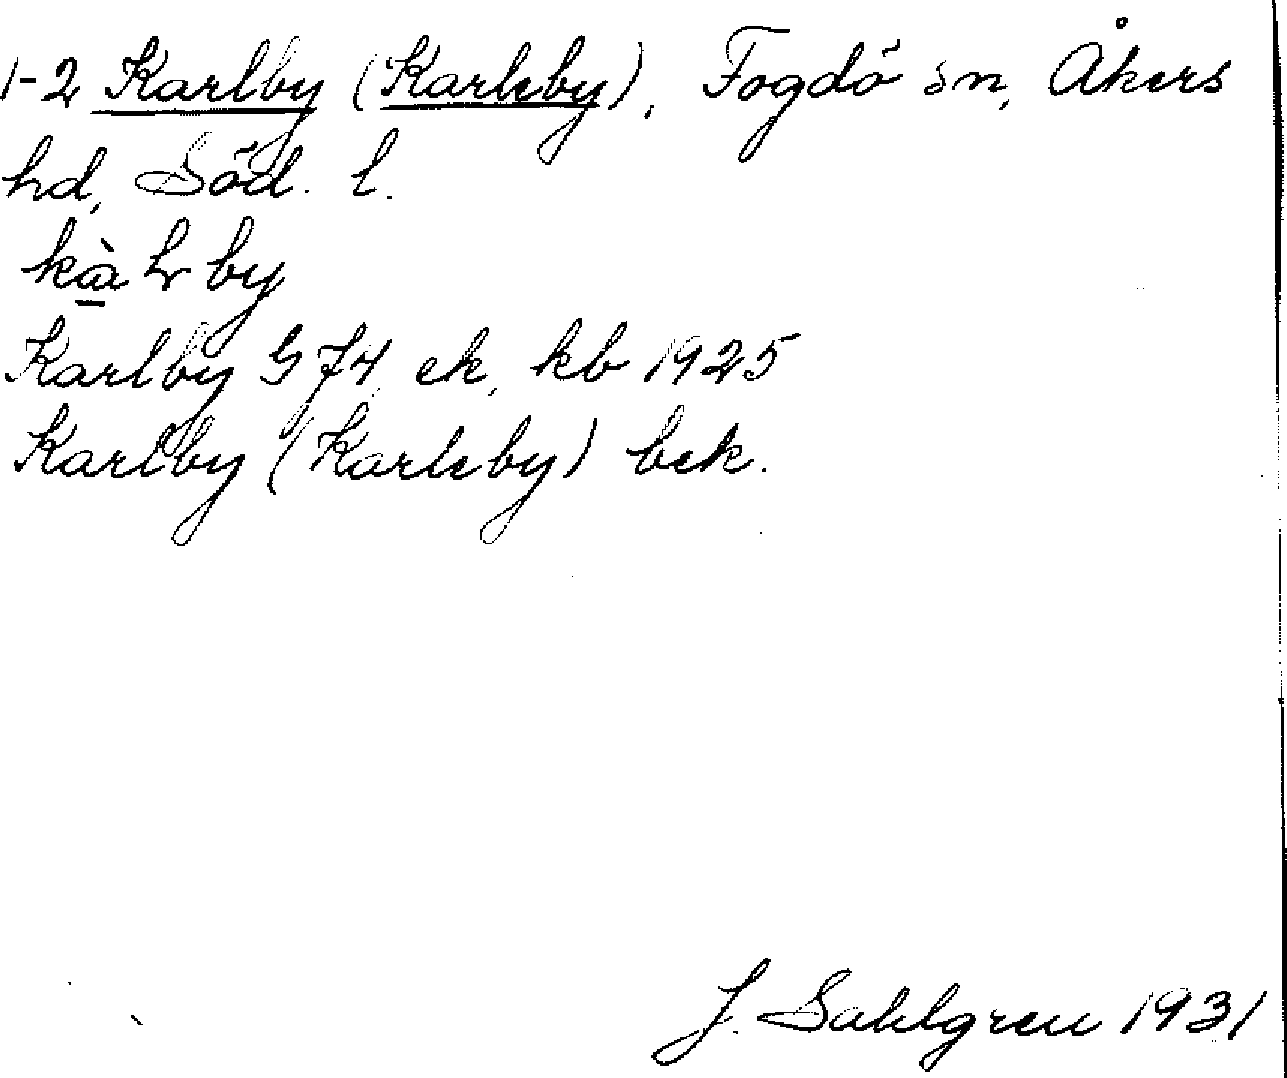 1-2 Karlby (Karleby), Fogdö sn, Åkers
hd, Söd. l.
Karlby G 74, ek, kb 1925
Karlby (Karleby) bek.
J. Sahlgren 1931